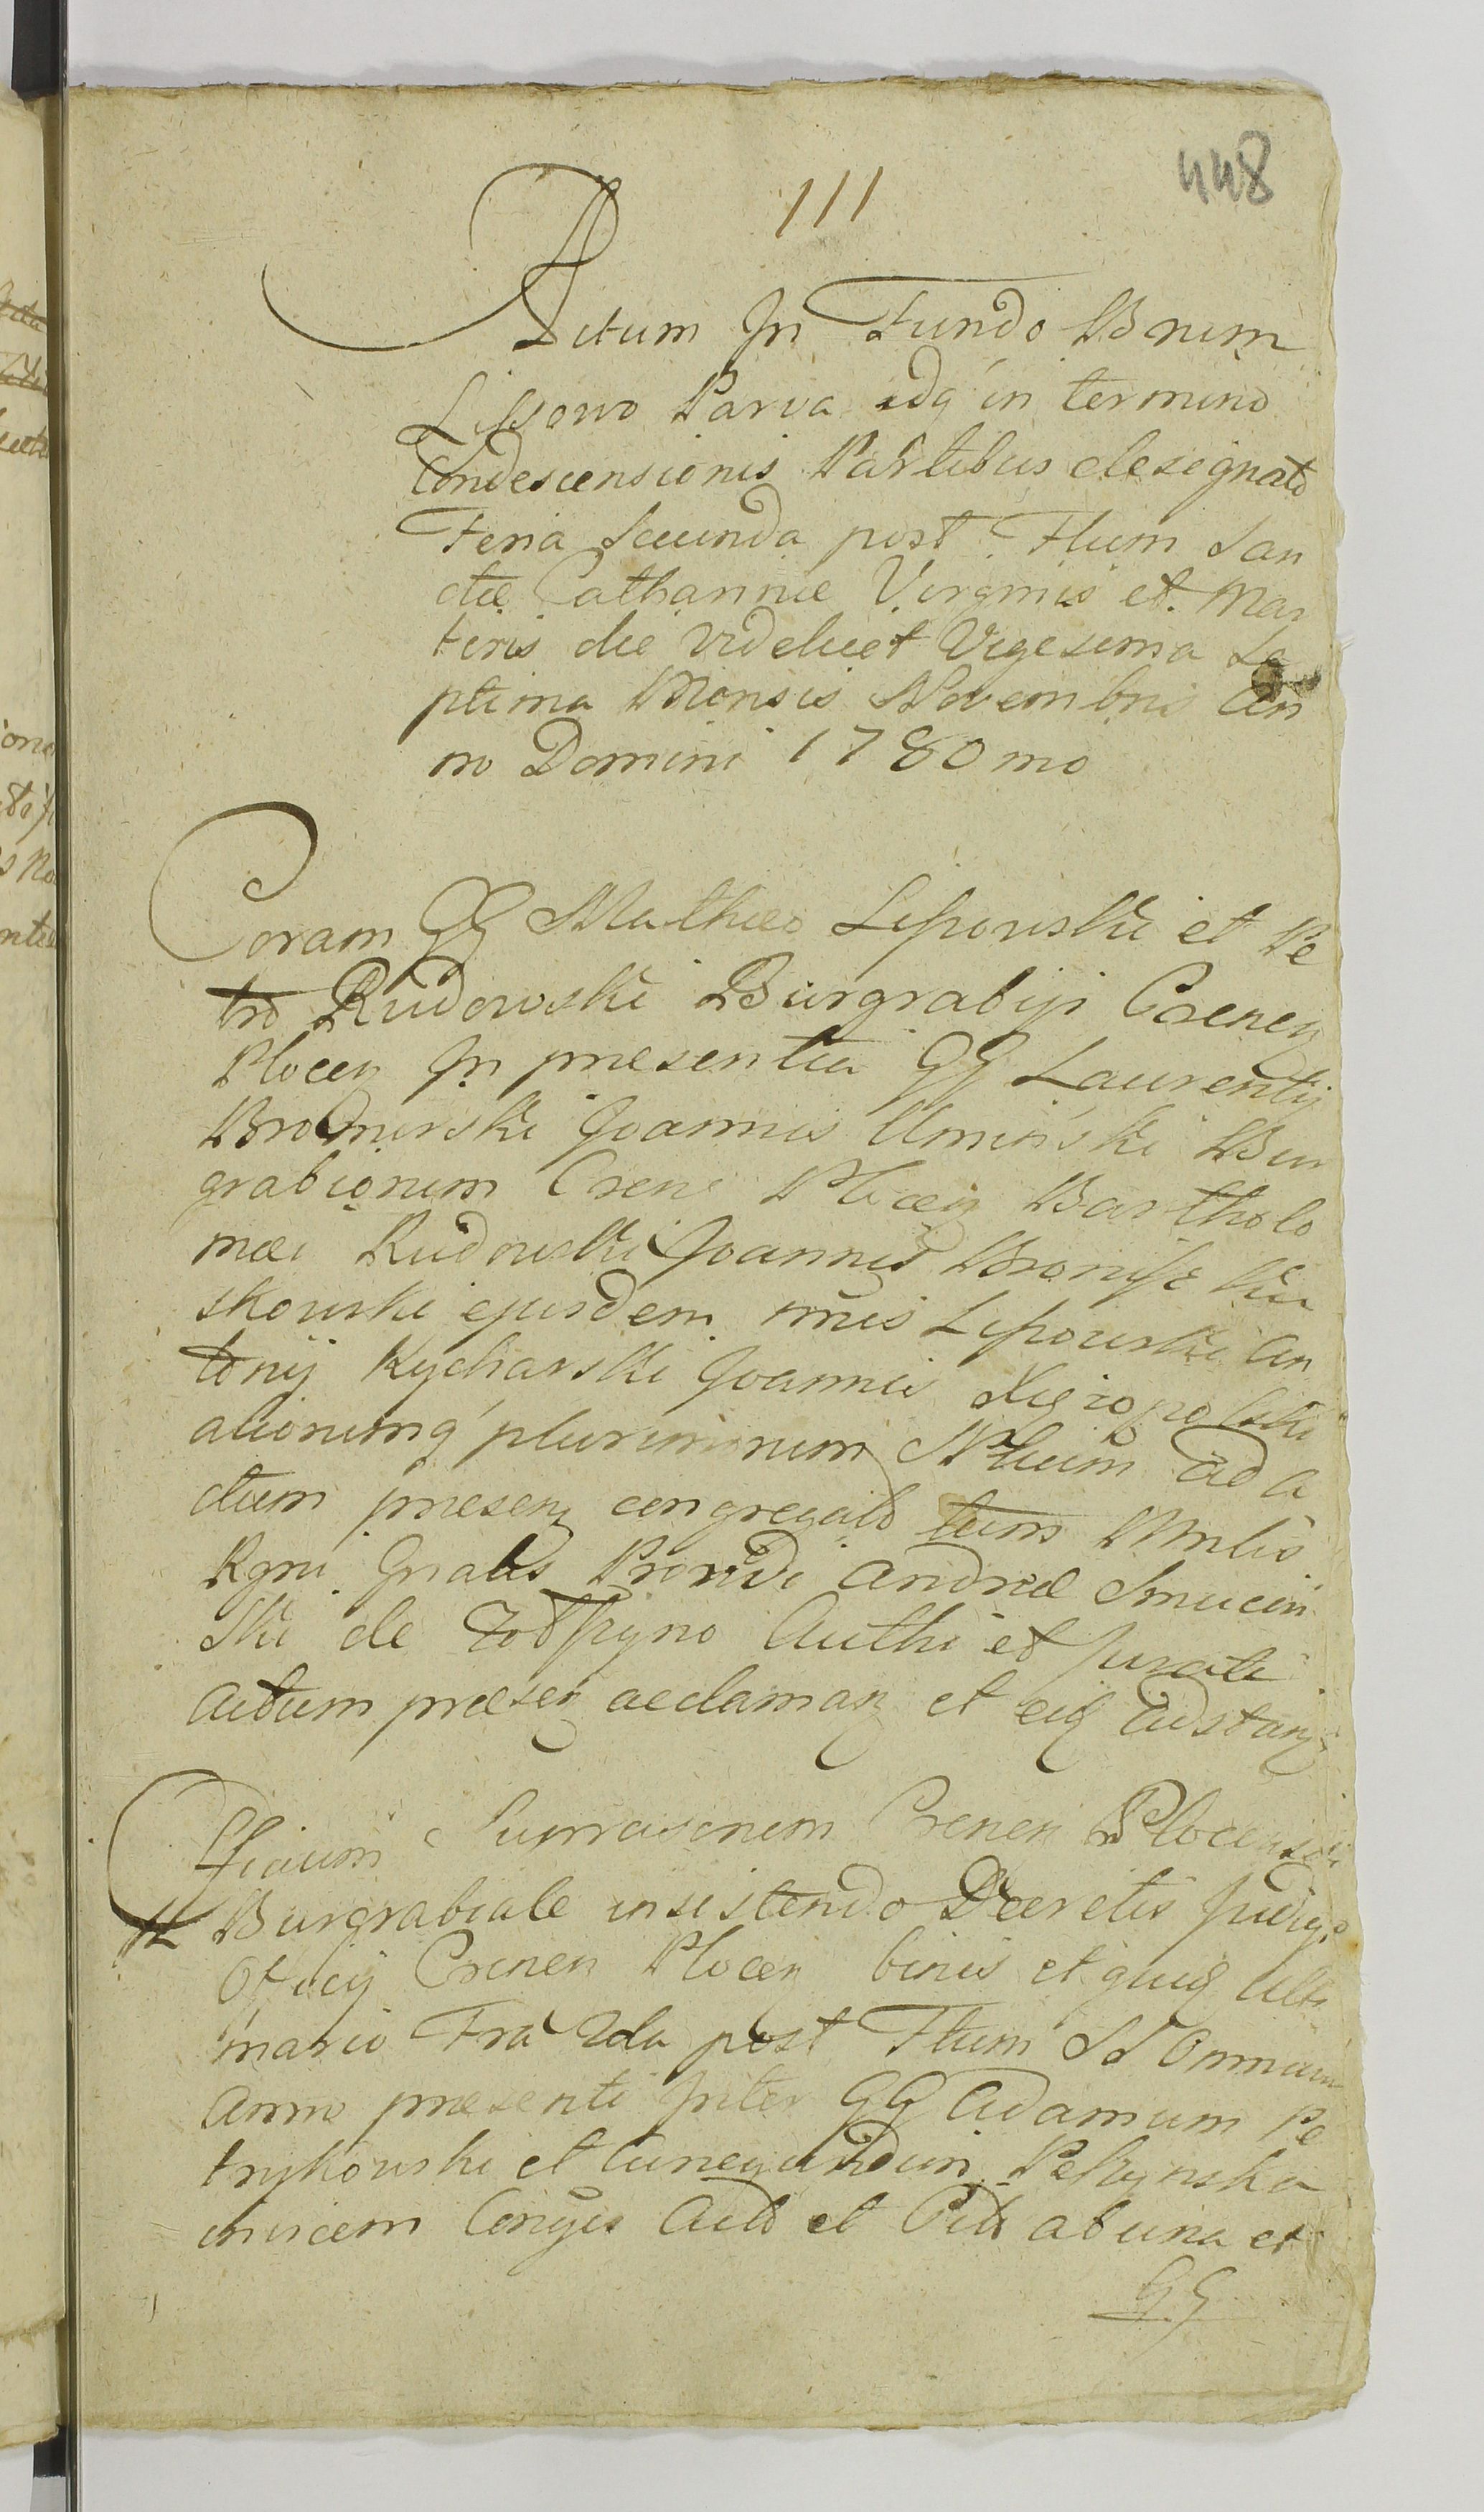 448
111
Actum In Fundo Bnrum
Lipowo Parva idq in termino
Condescensionis Partibus designato
Feria Secunda post Ftum San
ctæ Catharinæ Virginis et Mar
tiris die videlicet Vigesima Se
ptima Mensis Novembris An
no Domini 1780mo
Coram GG Mathæo Lipowski et Pe
tro Rudowski Burgrabijs Crenen
Plocen In præsentia GG Laurentij
Joannis Uminski Bur
grabiorum Plocen Bartholo
mæi Rudowski Joannis
skowski ejusdem nnis Lipowski An
tonij Rycharski Joannis
aliorumq plurimorum Nbilium ad a
ctum præsen congregato tum Mnlis
Rgni Gnalis Providi Andreæ Smucin
ski de Authi et Jurati
Actum præsen acclaman et eidem adstan
Officium Crenen Plocense
Burgrabiale insistendo Decretis Judicij
Officij Crenen Plocen binis et quidem ulti
mario Fria 2da post Ftum SS Omnium
Anno præsenti Inter GG Adamum Pe
trykowski et Cunegundim
invicem Conjges Acto et Citt ab una et
GG